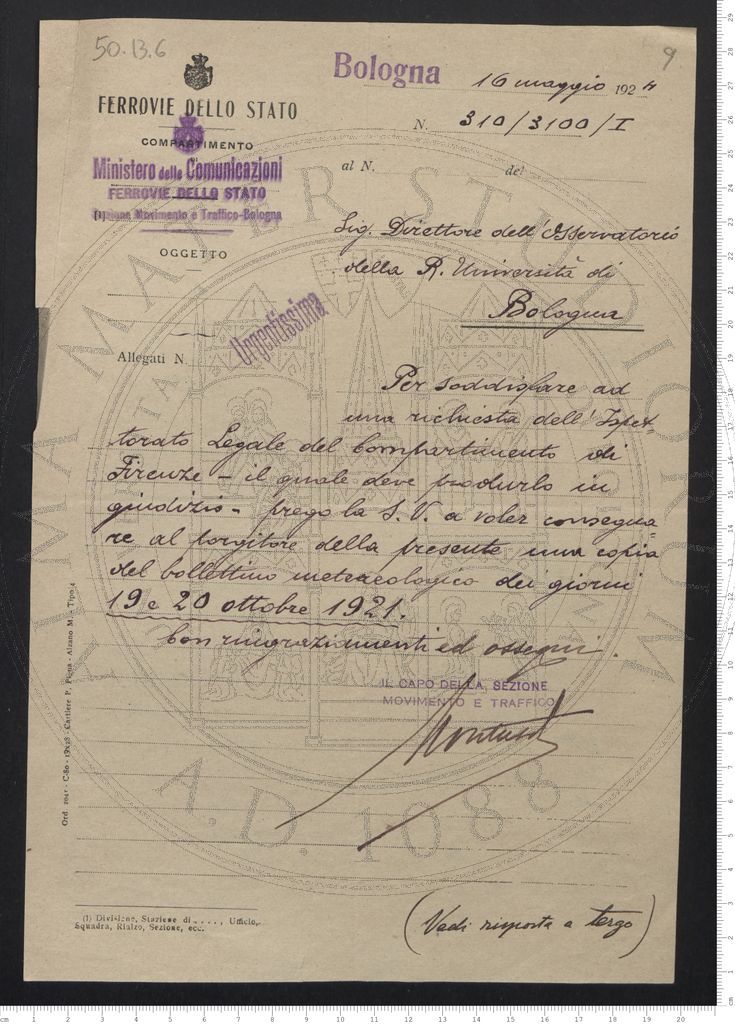 50.13.6
9
Bologna 16 maggio 1924
FERROVIE DELLO STATO
N. 310/3100/I
COMPARTIMENTO
al N. del
Ministero delle Comunicazioni
FERROVIE DELLO STATO
(1) Sezione Movimento e Traffico-Bologna
OGGETTO
Sig. Direttore dell'Osservatorio
della R. Università di
Bologna
Urgentissima
Allegati N.
Per soddisfare ad
una richiesta dell'Ispet-
torato Legale del Compartimento di
Firenze - il quale deve produrlo in
giudizio - prego la S.V. a voler consegna
re al porgitore della presente una copia
del bollettino meteorologico dei giorni
19 e 20 ottobre 1921.
Con ringraziamenti ed ossequi.
IL CAPO DELLA SEZIONE
MOVIMENTO E TRAFFICO
Cartiere P. Pigna - Alzano M. - Tipo 4
(1) Divisione, Stazione di ...., Ufficio,
Squadra, Rialzo, Sezione, ecc.
(Vedi risposta a tergo)
ALMA MATER STUDIORUM
A.D. 1088